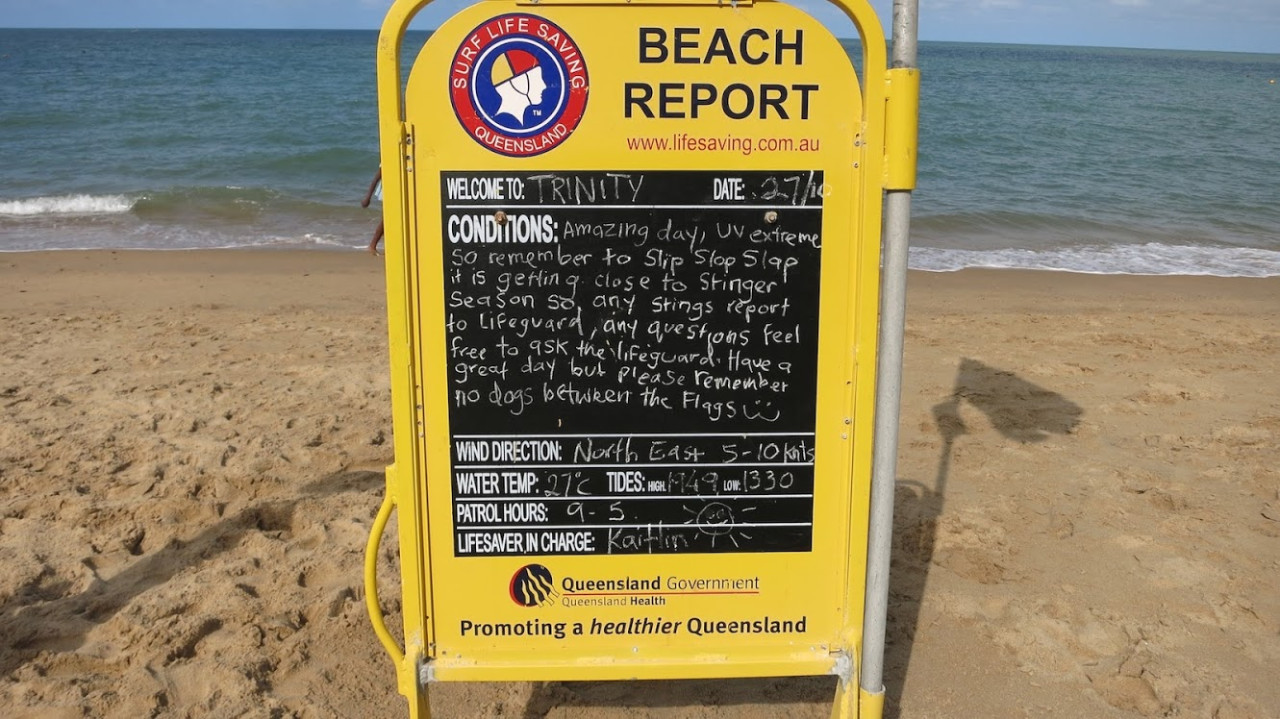 SURF LIFE SAVING
QUEENSLAND
TM
BEACH
REPORT
www.lifesaving.com.au
WELCOME TO: TRINITY DATE: 27/10
CONDITIONS: Amazing day, UV extreme
So remember to Slip Slop Slap
it is getting close to Stinger
Season so any Stings report
to Lifeguard, any questions Feel
free to ask the lifeguard. Have a
great day but please remember
no dogs between the Flags
WIND DIRECTION: North East 5-10 knts
WATER TEMP: 27°c TIDES: HIGH: 1949 LOW: 1330
PATROL HOURS: 9-5.
LIFESAVER IN CHARGE: Kaitlin
Queensland Government
Queensland Health
Promoting a healthier Queensland